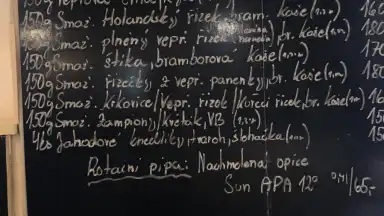 150g Smaž. Holandský řízek, bram. kaše (1,3,7) 16
150g Smaž. plněný vepř. řízek kaše (1,3,7)
150g Smaž. štika, bramborova kaše (1,3,4,7) 18
150g Smaž. řízečky z vepř. panenky, br. kaše (1,3,7)
150g Smaž. krkovice/Vepř. řízek/Kuřecí řízek, br. kaše (1,3,7) 16
150g Smaž. žampiony/květák, VB (1,3,7)
4ks Jahodové knedlíky, tvaroh, šlehačka (1,3,7)
Rotační pípa: Nachmelená opice
Sun APA 12° 0,4l/65,-